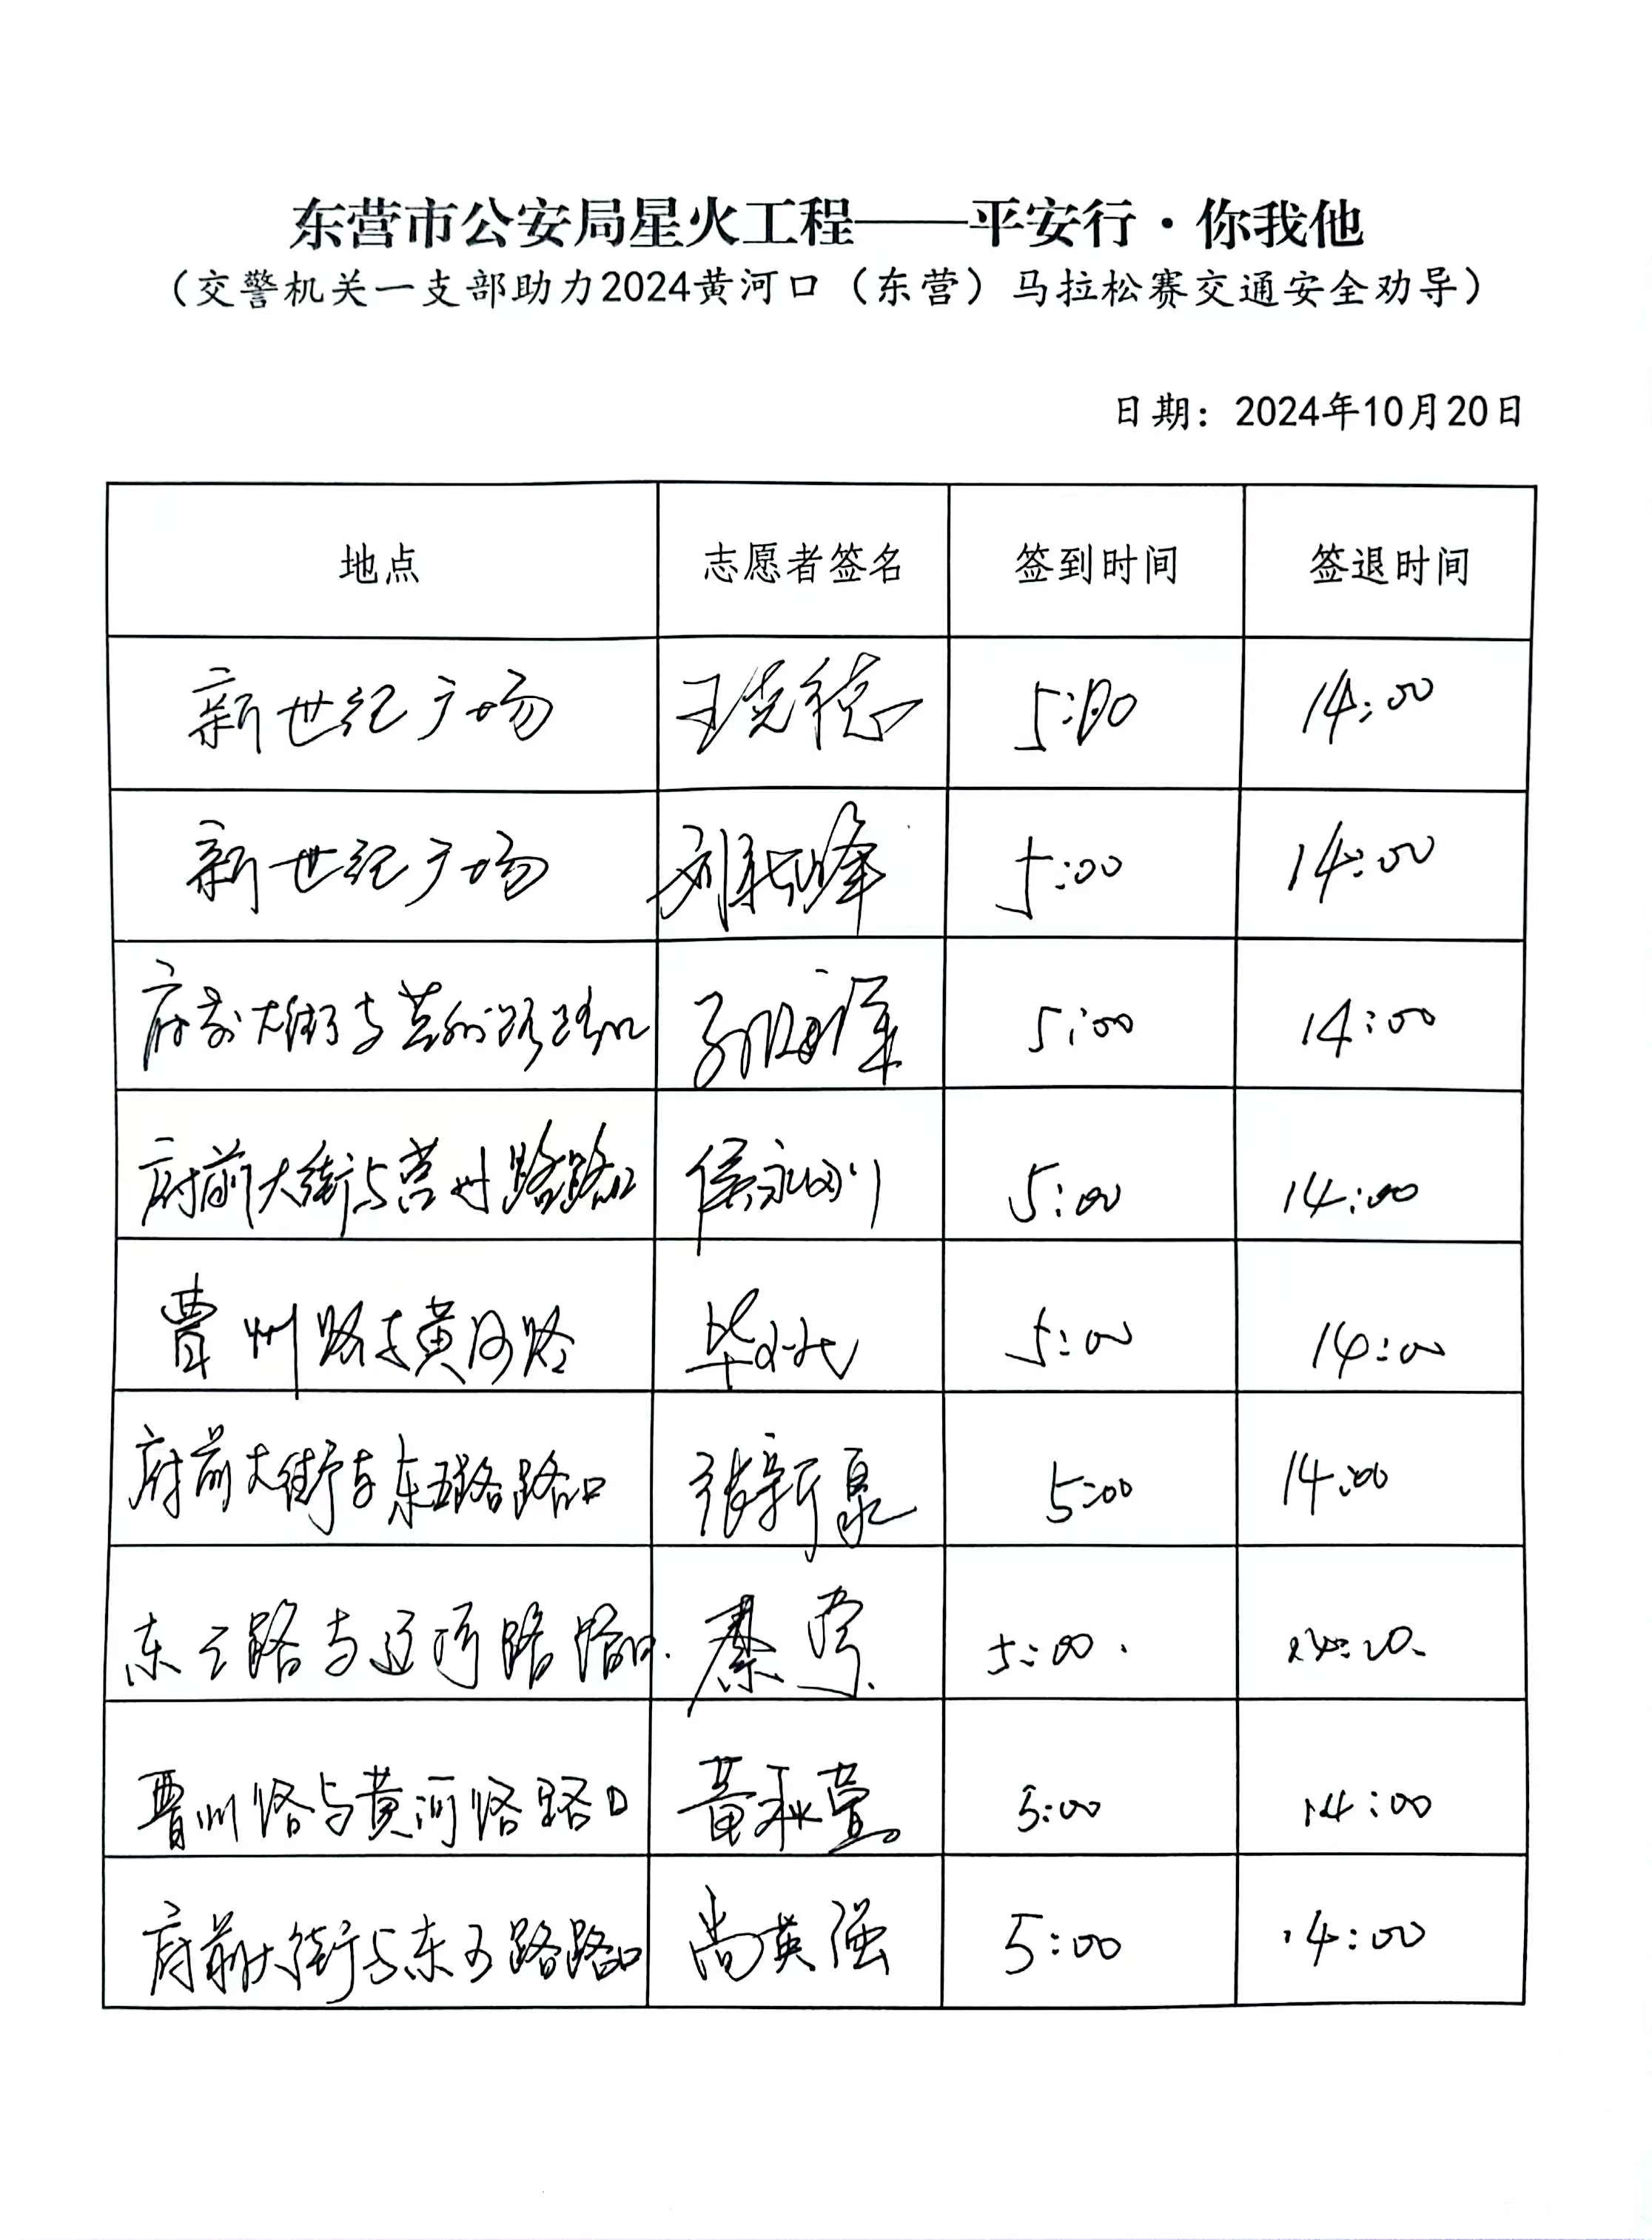 东营市公安局星火工程——平安行·你我他
（交警机关一支部助力2024黄河口（东营）马拉松赛交通安全劝导）
日期：2024年10月20日
地点 志愿者签名 签到时间 签退时间
新世纪广场 王晓德 5:00 14:00
新世纪广场 刘 峰 5:00 14:00
府前大街与莒州路路口 孙海军 5:00 14:00
府前大街与莒州路路口 侯永刚 5:00 14:00
曹州路与黄河路 毕 5:00 14:00
府前大街与东五路路口 张新泉 5:00 14:00
东三路与辽河路路口. 秦 5:00. 14:20.
曹州路与黄河路路口 黄秋萱 5:00 14:00
府前大街与东 路路口 尚英强 5:00 14:00